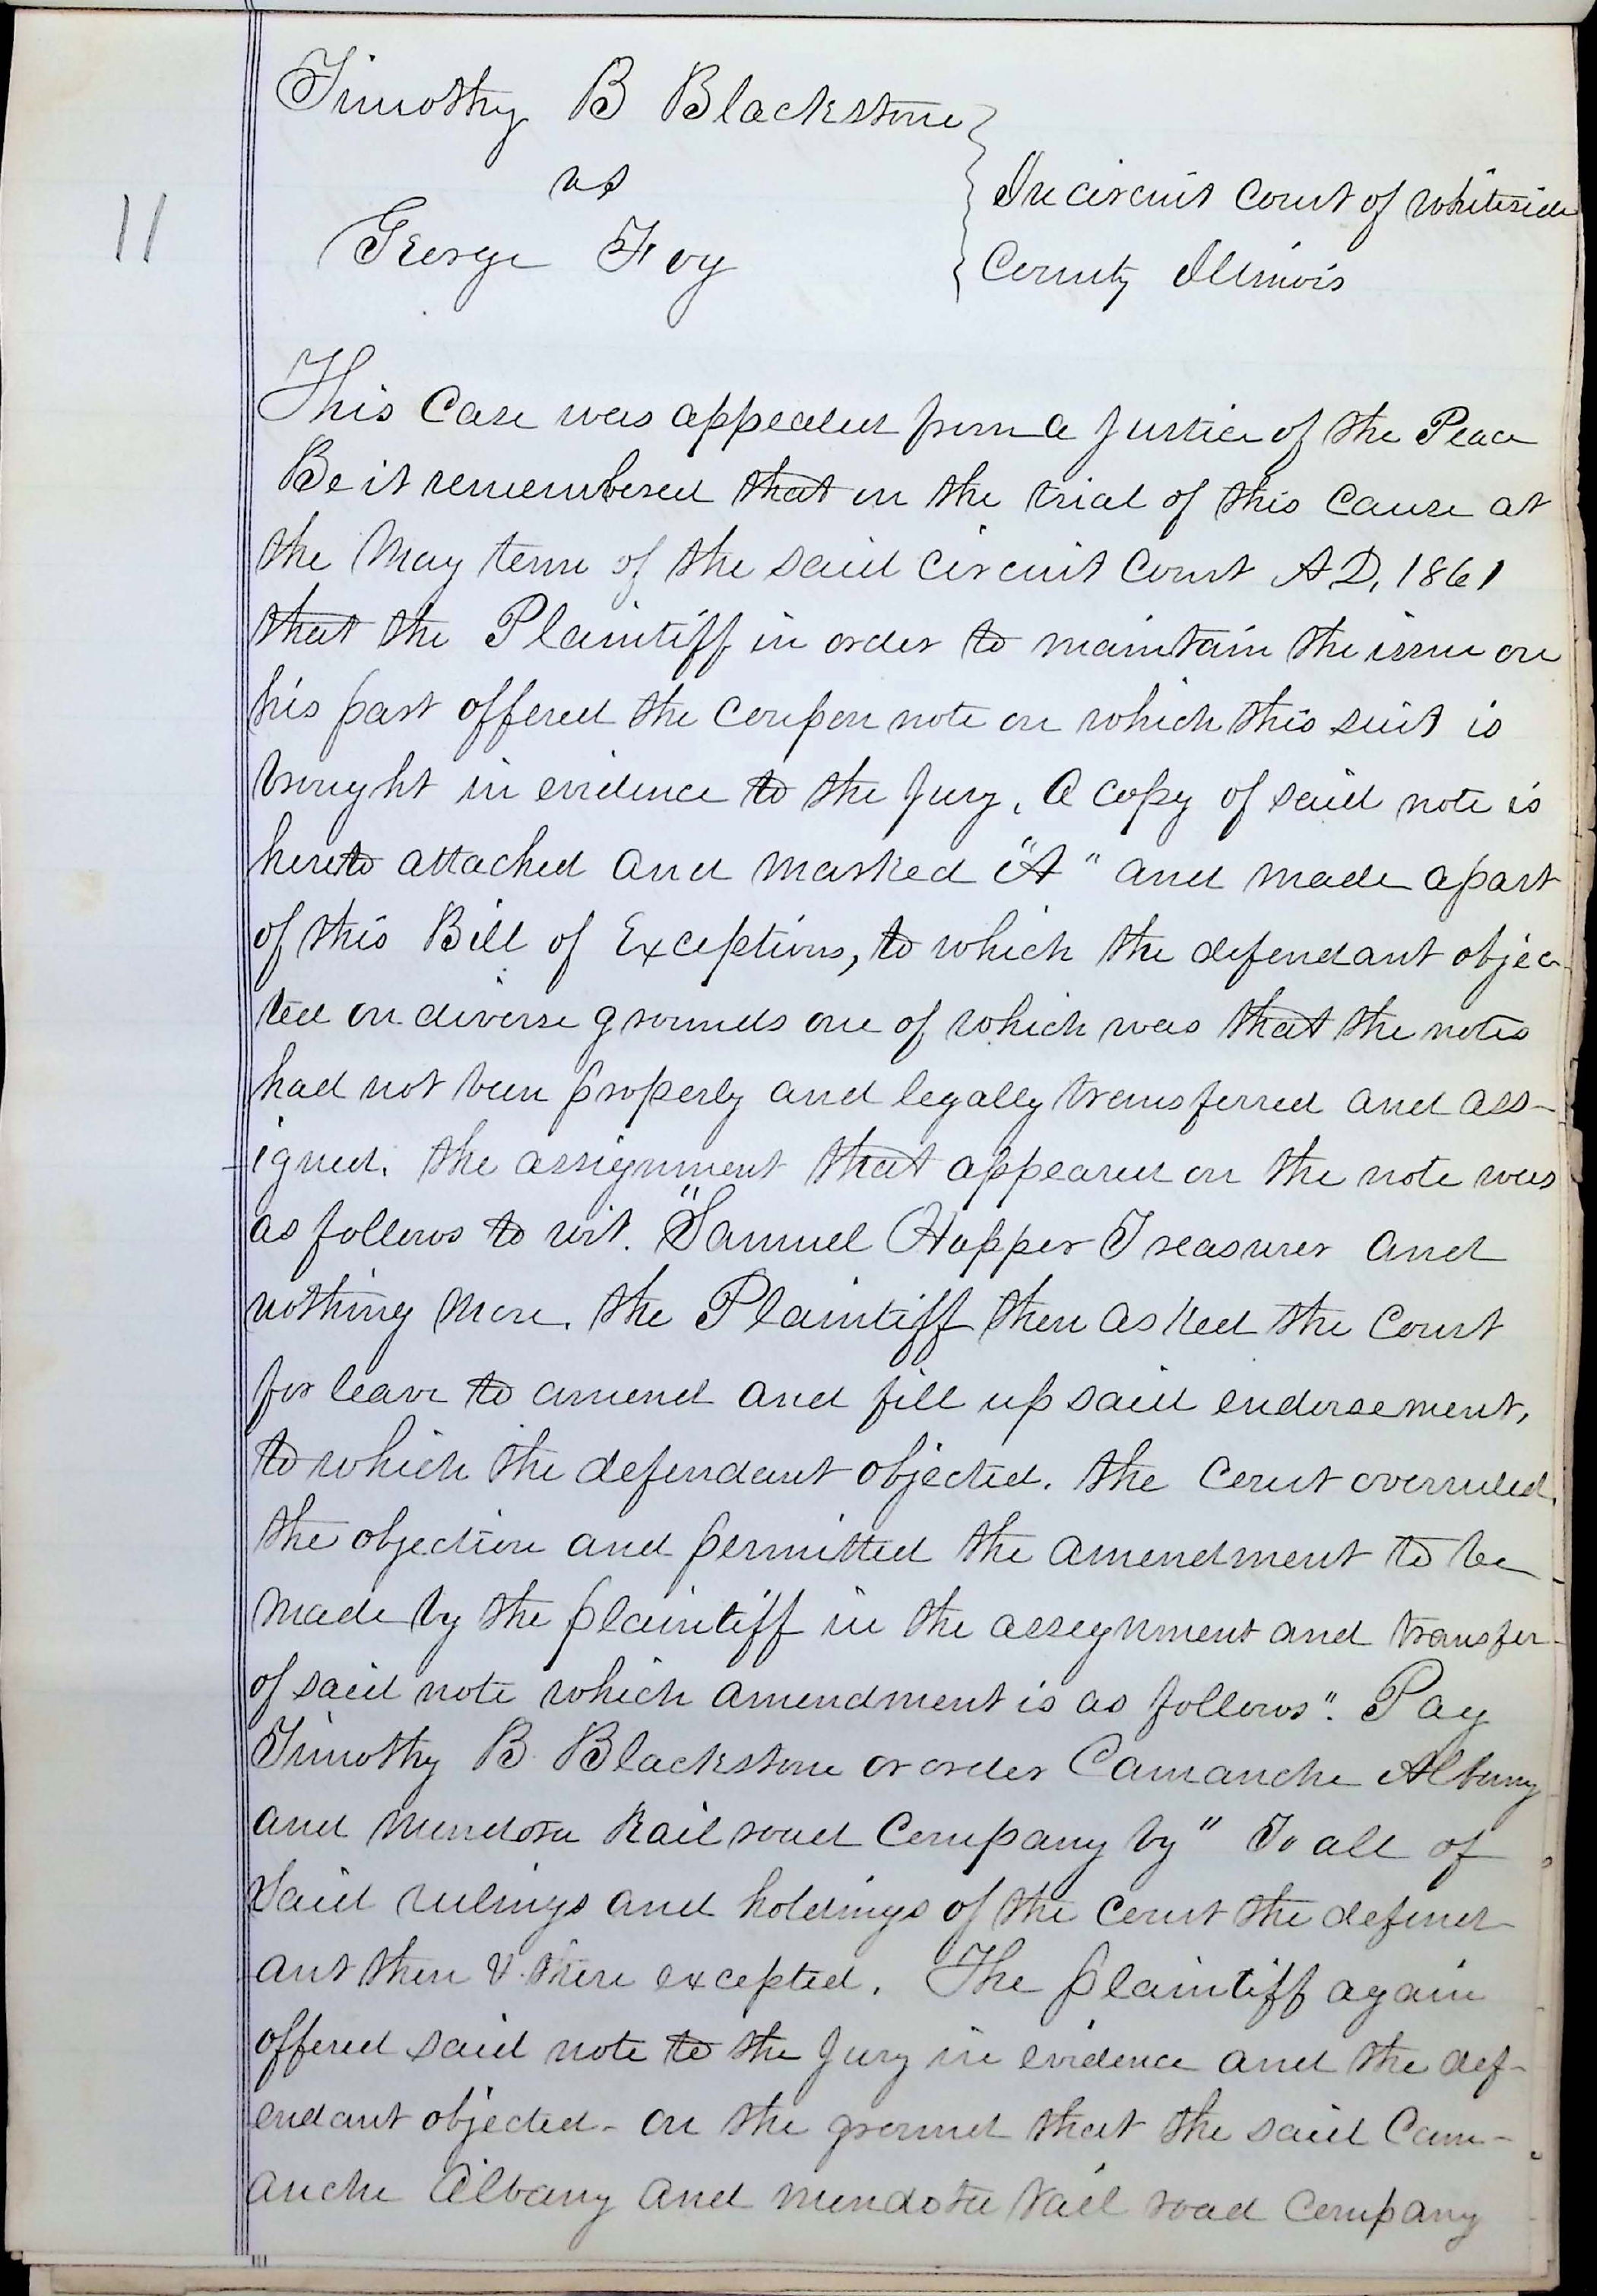 Timothy B Blackstone
vs
In circuit Court of Whiteside
11
George Foy
County Illinois
This Case was appealed from a Justice of the Peace
Be it remembered that on the trial of this Cause at
the May term of the said Circuit Court A D, 1861
that the Plaintiff in order to maintain the issue on
his part offered the Coupon note on which this suit is
brought in evidence to the Jury. A copy of said note is
hereto attached and marked "A" and made apart
of this Bill of Exceptions, to which the defendant objec-
ted on diverse grounds one of which was that the notes
had not been properly and legally transferred and ass-
igned. the assignment that appeared on the note was
as follows to wit. "Samuel Happer Treasurer and
nothing more. the Plaintiff then asked the Court
for leave to amend and fill up said endorsement,
to which the defendant objected. the Court overruled
the objection and permitted the amendment to be
made by the plaintiff in the assignment and transfer
of said note which amendment is as follows". Pay
Timothy B. Blackstone or order Camanche Albany
and Mendota Rail road Company by" To all of
Said rulings and holdings of the Court the defend
ant then & there excepted. The plaintiff again
offered said note to the Jury in evidence and the def-
endant objected - on the ground that the said Cam-
anche Albany and Mendota Rail road Company